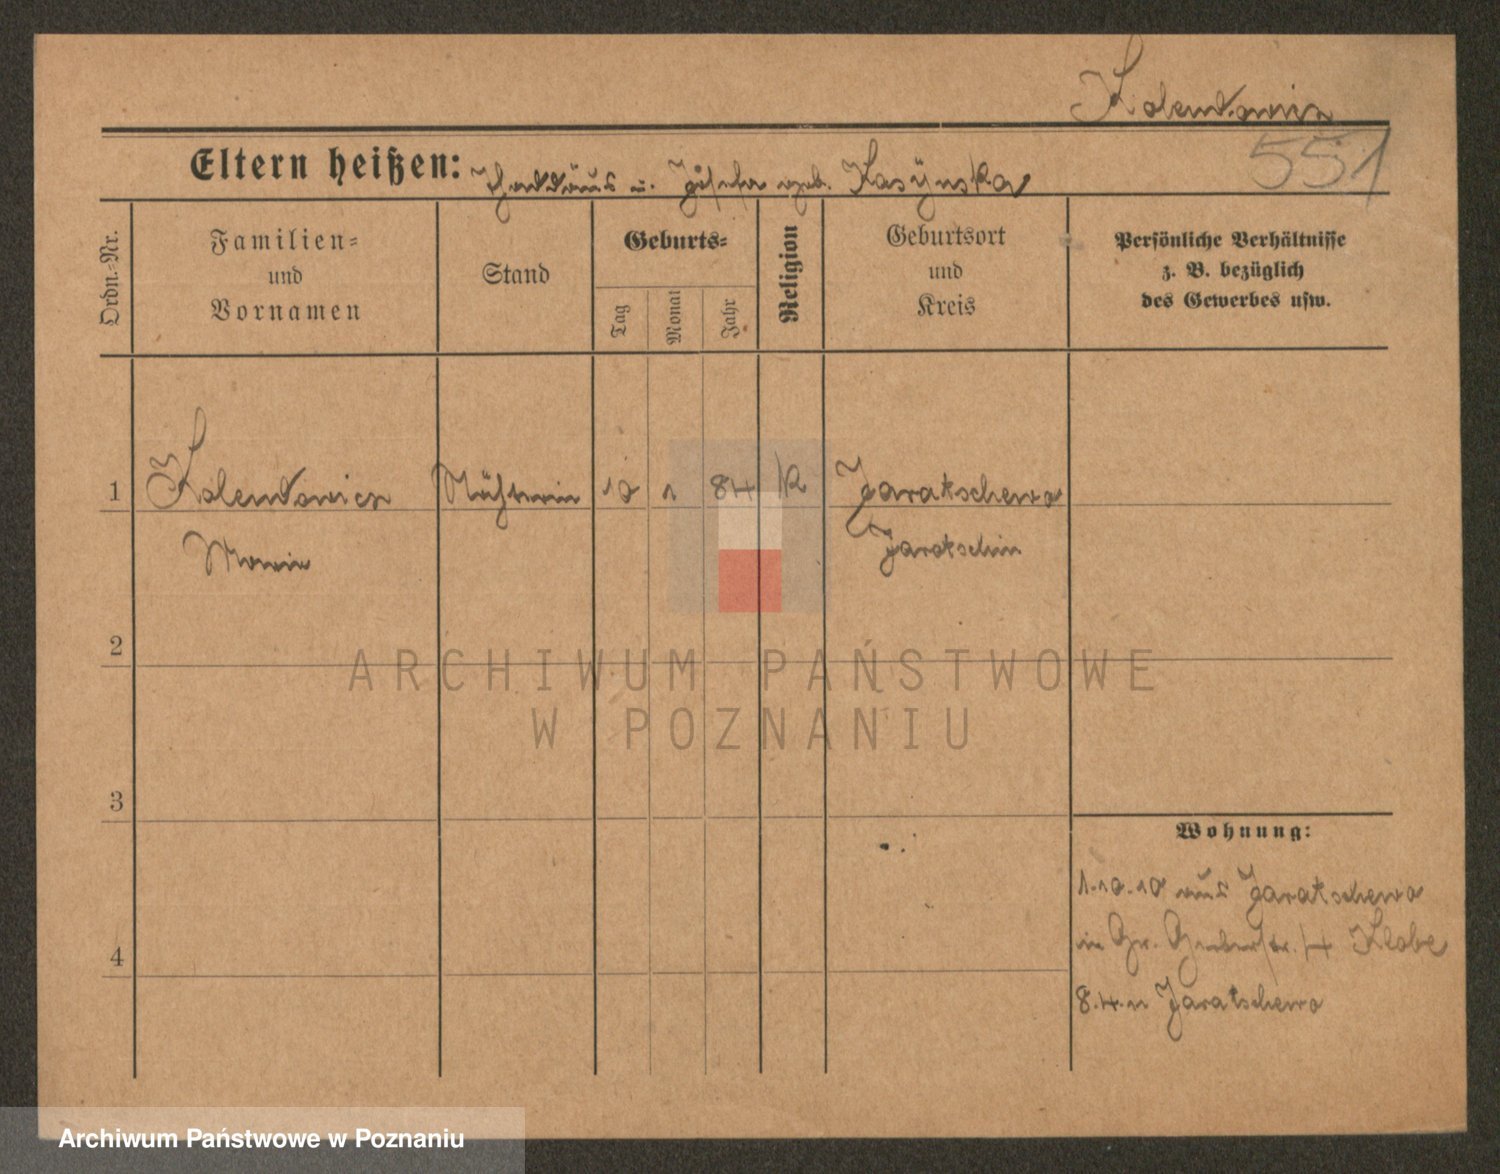 Kolendowicz
551
Eltern heißen: Thaddäus u. Josefa geb. Kasynska
Ordn.-Nr.
Familien-
und
Vornamen
Stand
Geburts-
Tag
Monat
Jahr
Religion
Geburtsort
und
Kreis
Persönliche Verhältnisse
z. B. bezüglich
des Gewerbes usw.
1 Kolendowicz Nähterin 10 1 84 K Jaratschewo
Maria Jarotschin
2
3
4
Wohnung:
1.10.10 aus Jaratschewo
in Gr. Gerberstr. 4
8.4.11 Jaratschewo
ARCHIWUM PAŃSTWOWE
W POZNANIU
Archiwum Państwowe w Poznaniu